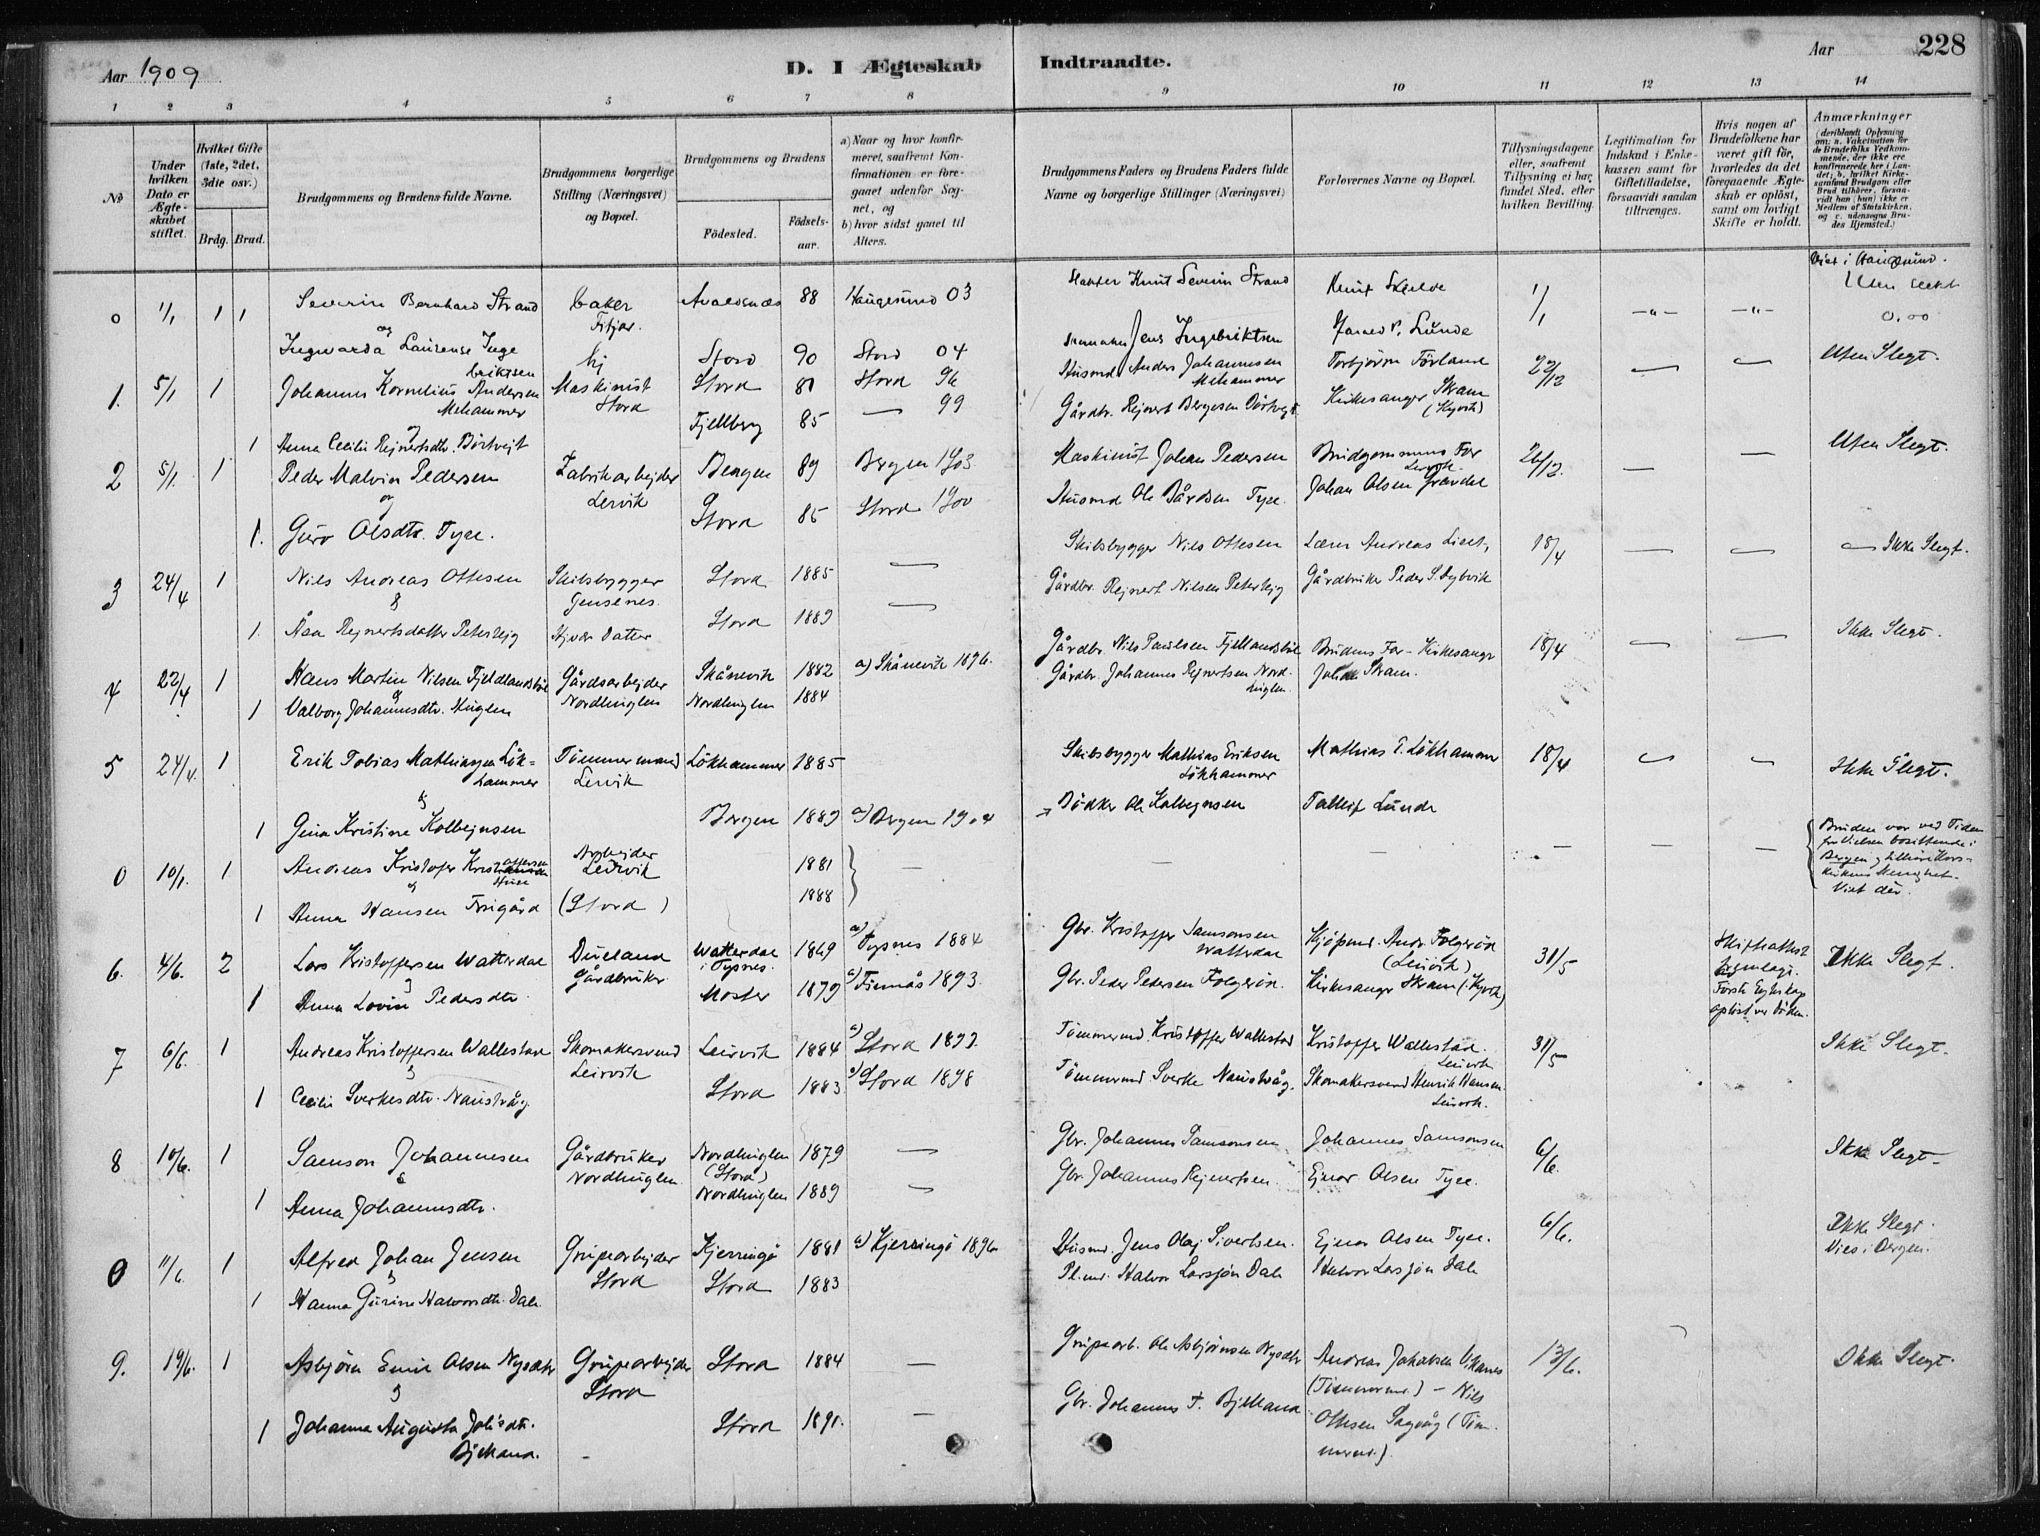 Aar 1909
D. I Ægteskab Indtraadte.
Aar
228
1 2 3 4 5 6 7 8 9 10 11 12 13 14
No
Under hvilken Dato er Ægte-skabet stiftet.
Hvilket Gifte (1ste, 2det, 3die osv.)
Brdg. Brud.
Brudgommens og Brudens fulde Navne.
Brudgommens borgerlige Stilling (Næringsvei) og Bopæl.
Brudgommens og Brudens
Födested.
Födsels-aar.
a) Naar og hvor konfir-meret, saafremt Kon-firmationen er fore-gaaet udenfor Sog-net, og
b) hvor sidst gaaet til Alters.
Brudgommens Faders og Brudens Faders fulde Navne og borgerlige Stillinger (Næringsvei)
Forlovernes Navne og Bopæl.
Tillysningsdagene eller, saafremt Tillysning ei har fundet Sted, efter hvilken Bevilling.
Legitimation for Indskud i Enke-kassen samt for Giftetilladelse, forsaavidt saadan tiltrænges.
Hvis nogen af Brudefolkene har været gift før, hvorledes da det foregaaende Ægte-skab er oplöst, samt om lovligt Skifte er holdt.
Anmærkninger
(deriblandt Oplysning om: a. Vakcination for de Brudefolks Vedkom-mende, der ikke ere konfirmerede her i Lan-det; b. hvilket Kirke-samfund Brudgom eller Brud tilhörer, forsaa-vidt han (hun) ikke er Medlem af Statskirken, og c. udensogns Bru-des Hjemsted.)
0 1/1 1 1 Severin Bernhard Strand baker Fitjar. Avaldsnes 88 Haugesund 03 Knut Severin Strand Knut 1/1 -"- -"- Viet i Haugesund.
og
Ingvarda Laurense Inge briktsen Stord 90 Stord 04 Jens Ingebriktsen Lunde
1. 5/1 1 Johannes Kornelius Andersen Mehammer Maskinist Stord Stord 81 Stord 96 Husmd Anders Johannessen Mehammer Torbjörn Förland 22/12 — — Uten Slegt.
og
1 Anna Cecilie Rejnertsdtr. Börtvejt Fjellberg 85 — 99 Gårdbr. Rejnert Bergesen Börtvejt Kirkesanger Skram
2 5/1. 1 Peder Malvin Pedersen Fabrikarbejder Lervik Bergen 89 Bergen 1903 Maskinist Johan Pedersen Brudgommens Far Lervik 26/12. — — Uten Slegt.
og
1. Guro Olsdtr. Tyse. Stord 85 Stord 1900 Husmd Ole Bårdsen Tyse. Johan Olsen Grovdal
3 24/4 1 Nils Andreas Ottesen Skibsbygger Jensenes. Stord 1885 — Skibsbygger Nils Ottesen Lærer Andreas 18/4 — — — Ikke Slegt.
&
1. Åsa Rejnertsdatter Petarteig Datter Stord 1889 — Gårdbr. Rejnert Nilsen Petarteig Gårdbruker Peder S. Dybvik
4 22/4 1 Hans Martin Nilsen Fjeldlandsböe Gårdsarbejder Nordhuglen Skånevik 1882 a) Skånevik 1896. Gårdbr. Nils Paulsen Fjellandsböe Brudens Far - Kirkesanger 18/4 — — Ikke Slegt.
&
1 Valborg Johannesdtr. Huglen Nordhuglen 1884 Gårdbr. Johannes Rejnertsen Nord-huglen. Skram.
5 24/4. 1 Erik Tobias Mathiassen Lök-hammer Tömmermand Lervik Lökhammer 1885 Skibsbygger Mathias Eriksen Lökhammer Mathias E. Lökhammer 18/4 — — Ikke Slegt.
&
1 Gina Kristine Kolbejnsen Bergen 1889 a) Bergen 1904 Bödker Ole Kolbejnsen Tollef Lunde
0 10/1. 1 Andreas Kristofer Kristoffersen Arbejder Leirvik 1881 — — — — — — Bruden var ved Tiden for Vielsen bosittende i Bergen og tilhörte Kors-kirkens Menighet. Viet der.
og
1 Anna Hansen (Stord) 1888
6. 4/6. 2 Lars Kristoffersen Watterdal Dueland Gårdbruker Watterdal i Tysnes. 1869 a) Tysnes 1884 Gbr. Kristoffer Samsonsen Watterdal Kjöpmd. Andr. Folgeröd (Leirvik) 31/5 Ikke Slegt.
&
1 Anna Lovise Pedersdtr. Moster 1879 a) Finnås 1893. Gbr. Peder Pedersen Folgeröd. Kirkesanger Skram Förste Egteskap oplöst ved Döden.
7 6/6. 1 Andreas Kristoffersen Wallestad Skomakersvend Leirvik Leirvik 1884 a) Stord 1899. Tömmermd Kristoffer Wallestad Kristoffer Wallestad. Leirvik 31/5 Ikke Slegt.
&
1 Cecilie Sverkesdtr. Naustvåg. Stord 1883 a) Stord 1898 Tömmermd Sverke Naustvåg. Skomakersvend Henrik Hansen. Leirvik.
8 10/6. 1 Samson Johannesen Gårdbruker Nordhuglen. Nordhuglen (Stord) 1879 — Gbr. Johannes Samsonsen Johannes Samsonsen 6/6. Ikke Slegt.
&
1 Anna Johannesdtr. Nordhuglen 1889 — Gbr. Johannes Rejnertsen. Ejnar Olsen Tyse.
0 11/6. 1 Alfred Johan Jensen Grupearbejder Stord Kjerringö 1881 a) Kjerringö 1896 Husmd. Jens Olaj Sivertsen. Ejnar Olsen Tyse. 6/6. Ikke Slegt. Viet i Bergen.
&
1 Hanna Gurine Halvorsdtr. Dale. Stord 1883 Pl.md. Halvor Larsson Dale Halvor Larsson Dale
9. 19/6. 1 Asbjörn Emil Olsen Nysæter Grupearbejder Stord Stord 1884 — Grupearb. Ole Asbjörnsen Nysæter Andreas Jakobsen Vikanes (Tömmermd.) - Nils 13/6. Ikke Slegt.
&
1 Johanna Augusta Joh's dtr. Bjelland. Stord 1890. — Gbr. Johannes T. Bjelland Ottesen Sagvåg (Töm-mermd.).